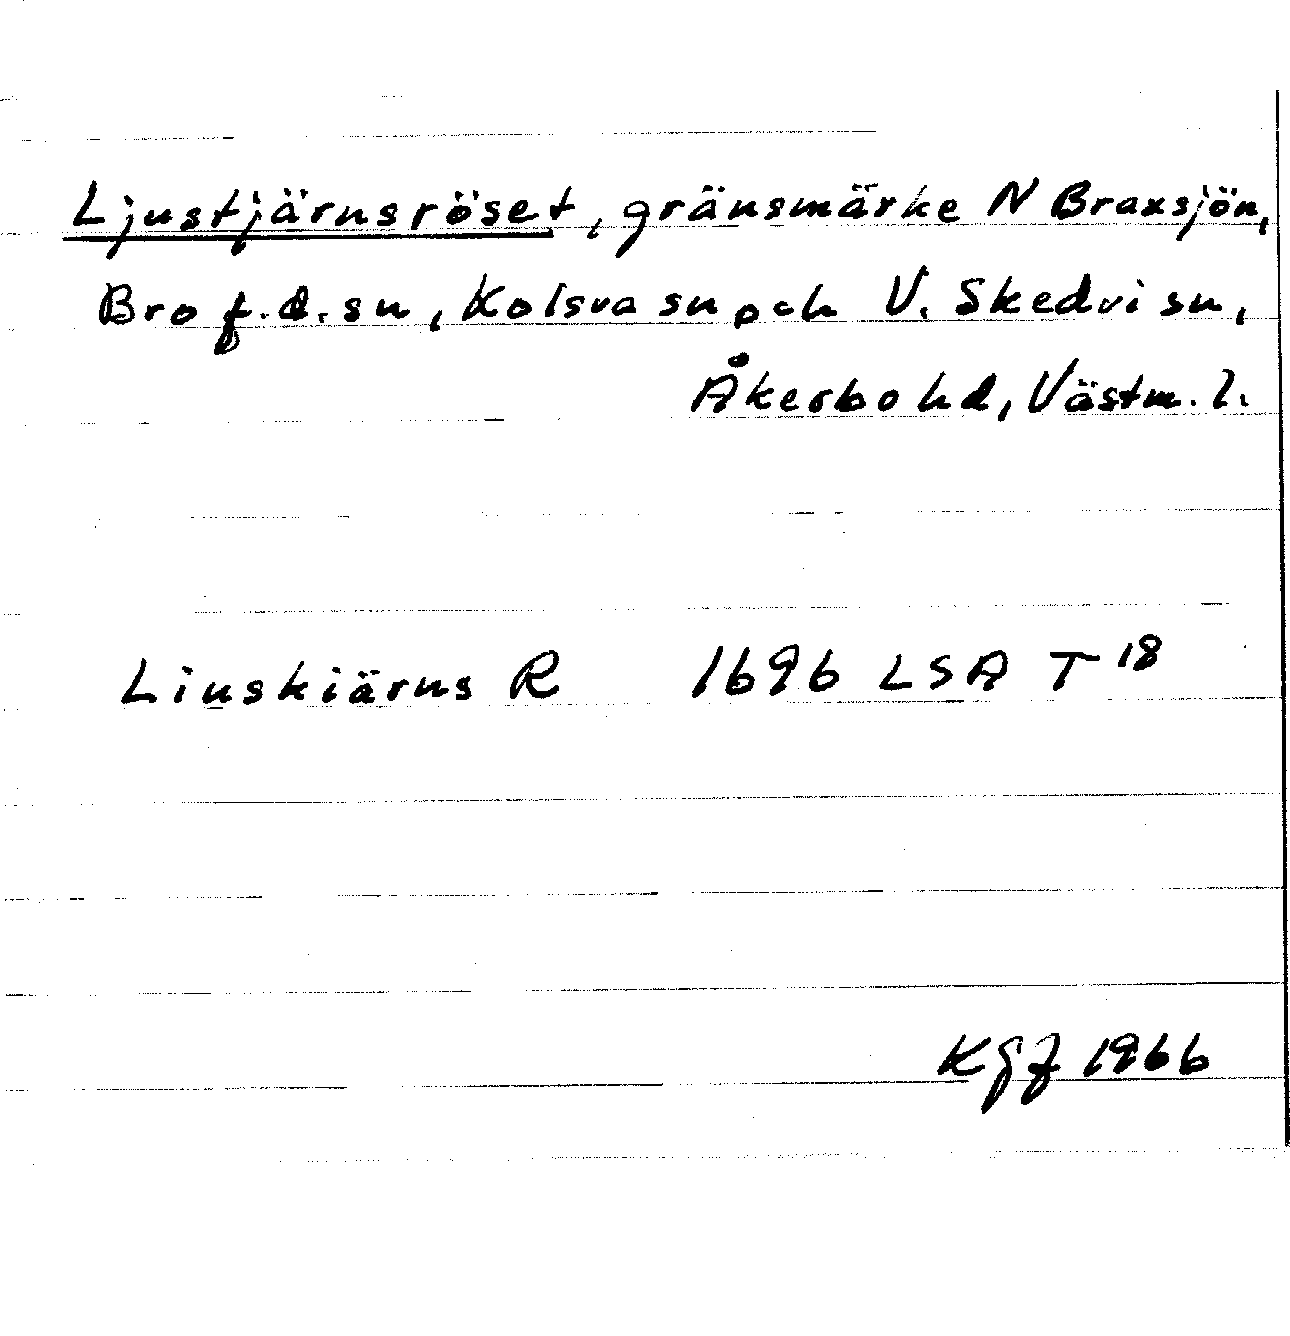 Ljustjärnsröset, gränsmärke N Braxsjön,
Bro f.d. sn, Kolsva sn och V. Skedvi sn,
Åkerbo hd, Västm. l.
Liuskiärns R 1696 LSA T 18
KGF 1966